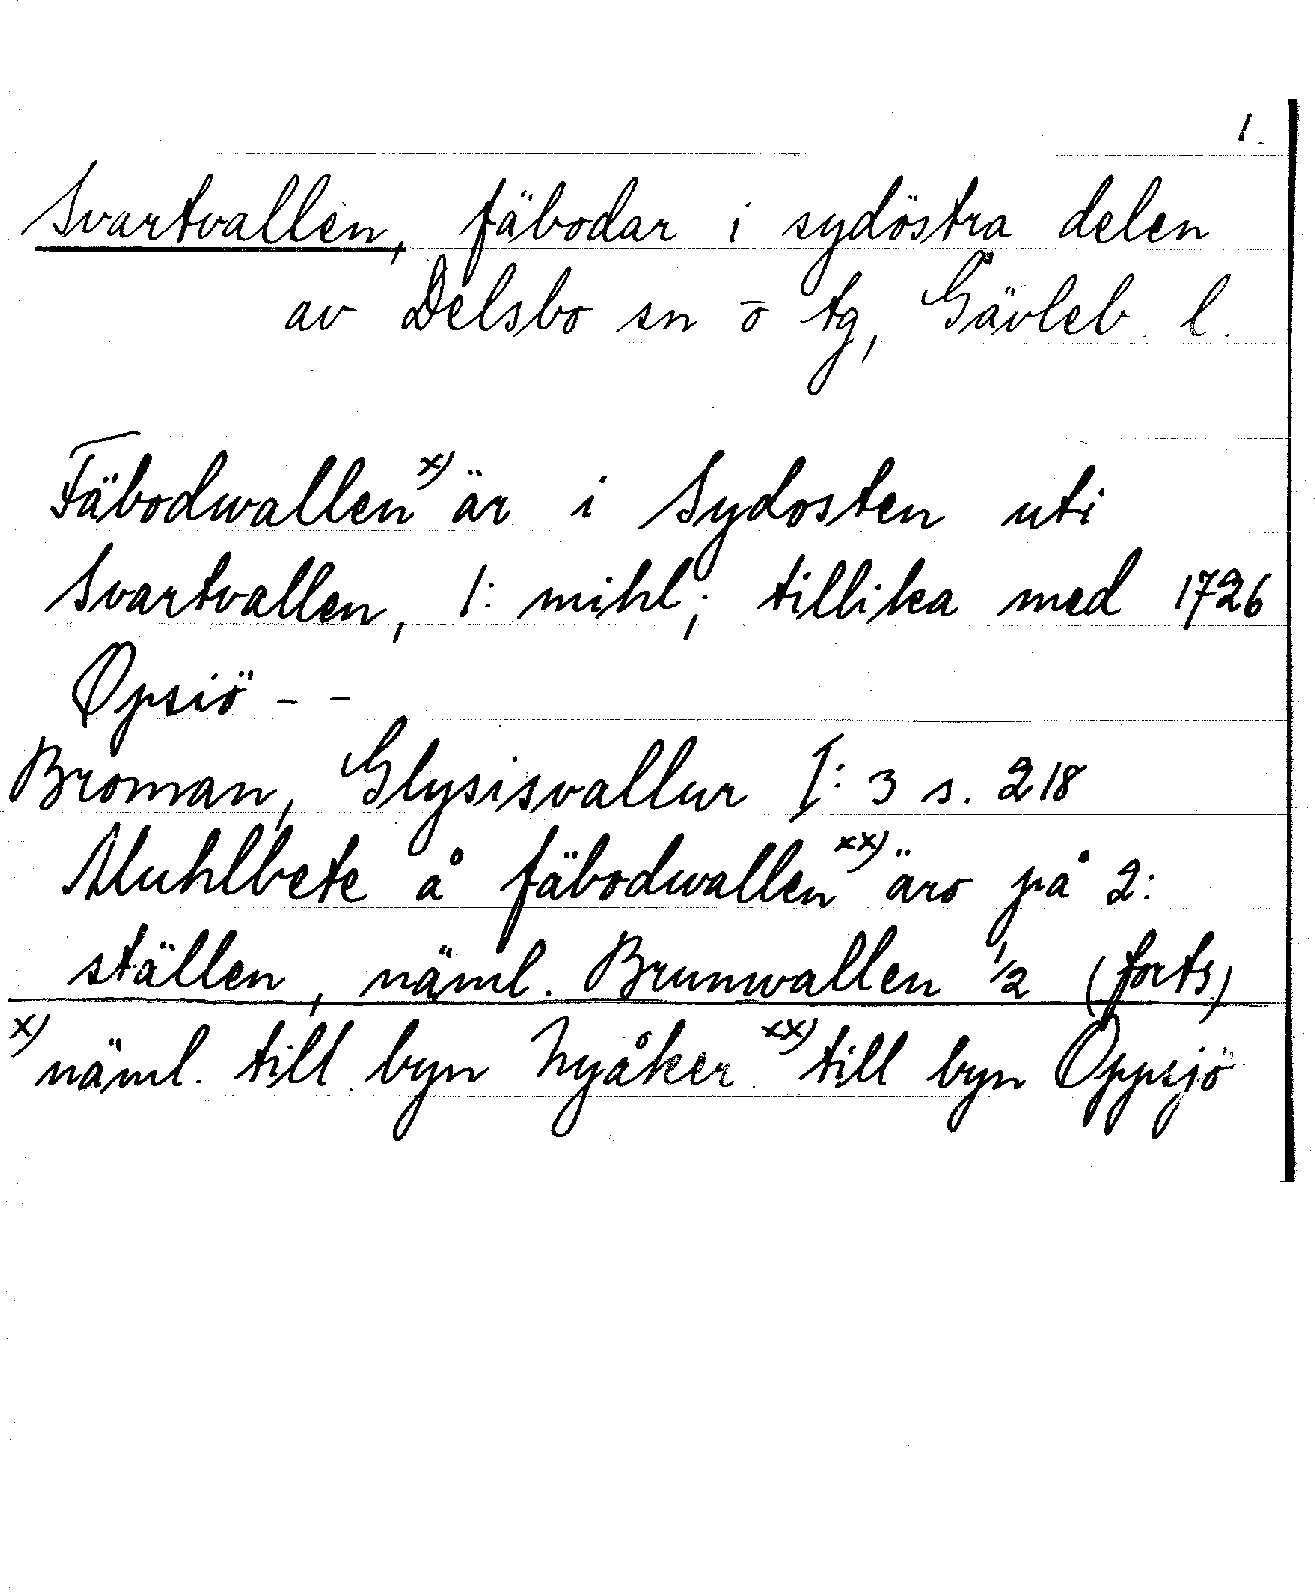 1.
Svartvallen, fäbodar i sydöstra delen
av Delsbo sn o tg, Gävleb. l.
Fäbodwallen x) är i Sydosten uti
Svartvallen, 1: mihl; tillika med 1726
Opsiö - -
Broman, Glysisvallur I: 3 s. 218
Muhlbete å fäbodwallen xx) äro på 2:
ställen, näml. Brunwallen 1/2 (forts)
x) näml. till byn Nyåker xx) till byn Oppsjö